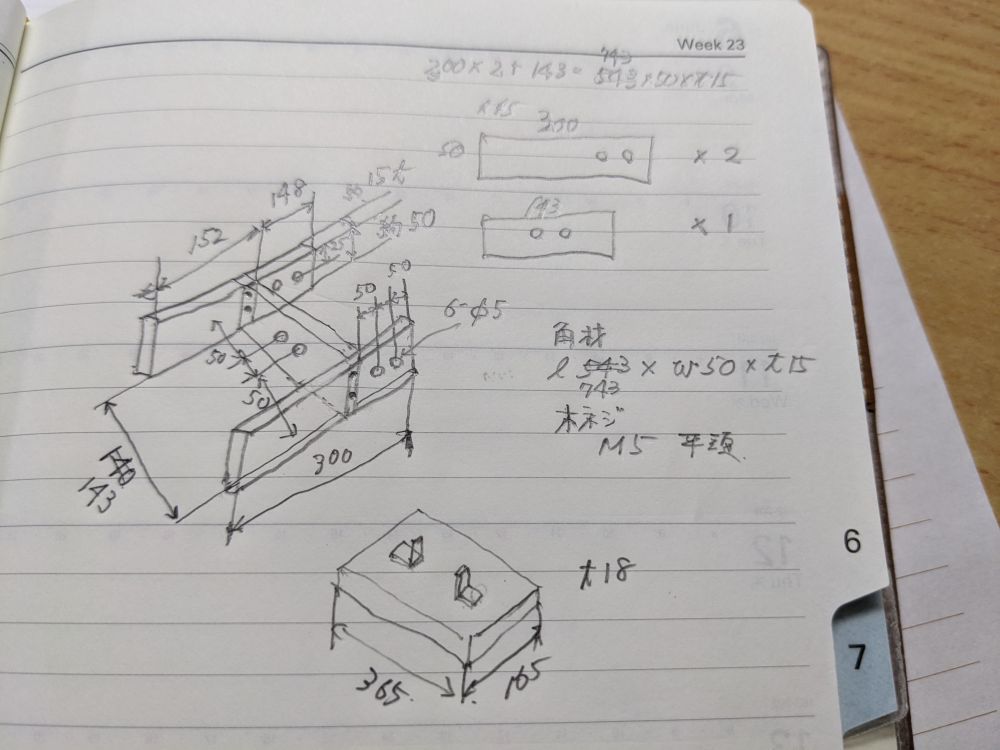 Week 23
743
300×2+143=543×50×t15
×t5
300
50
×2
143
×1
148
15t
152
約50
25
50
50
6-φ5
50
50
角材
l 543×w50×t15
743
木ネジ
M5 平頭
300
140
143
t18
365
165
6
7